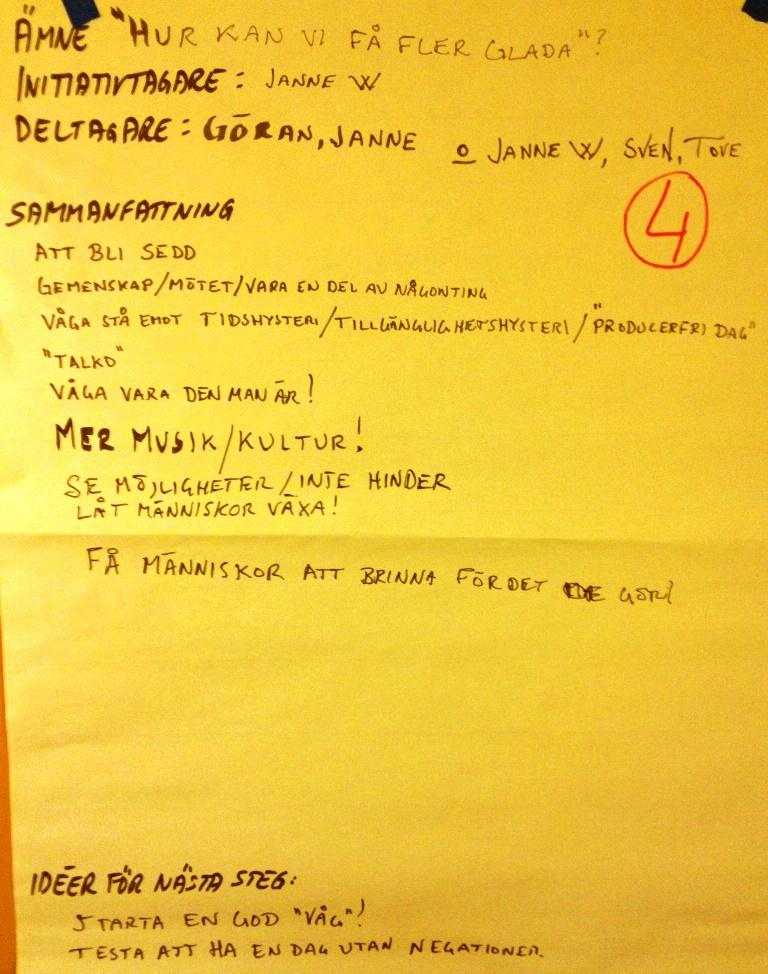 ÄMNE "HUR KAN VI FÅ FLER GLADA"?
INITIATIVTAGARE: JANNE W
DELTAGARE: GÖRAN, JANNE O JANNE W, SVEN, TOVE
SAMMANFATTNING
4
ATT BLI SEDD
GEMENSKAP/MÖTET/VARA EN DEL AV NÅGONTING
VÅGA STÅ EMOT TIDSHYSTERI/TILLGÄNGLIGHETSHYSTERI/"PRODUCERFRI DAG"
"TALKO"
VÅGA VARA DEN MAN ÄR!
MER MUSIK/KULTUR!
SE MÖJLIGHETER/INTE HINDER
LÅT MÄNNISKOR VÄXA!
FÅ MÄNNISKOR ATT BRINNA FÖR DET DE GÖR!
IDÉER FÖR NÄSTA STEG:
STARTA EN GOD "VÅG"!
TESTA ATT HA EN DAG UTAN NEGATIONER.